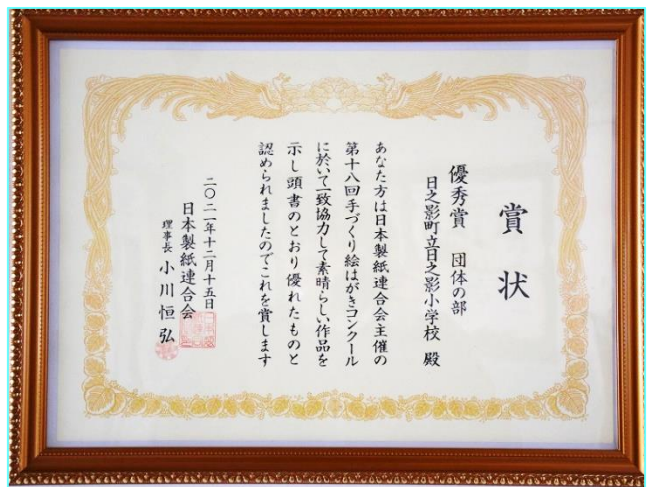 賞状
優秀賞 団体の部
日之影町立日之影小学校 殿
あなた方は日本製紙連合会主催の
第十八回手づくり絵はがきコンクール
に於いて一致協力して素晴らしい作品を
示し頭書のとおり優れたものと
認められましたのでこれを賞します
二〇二一年十二月十五日
日本製紙連合会
理事長 小川恒弘